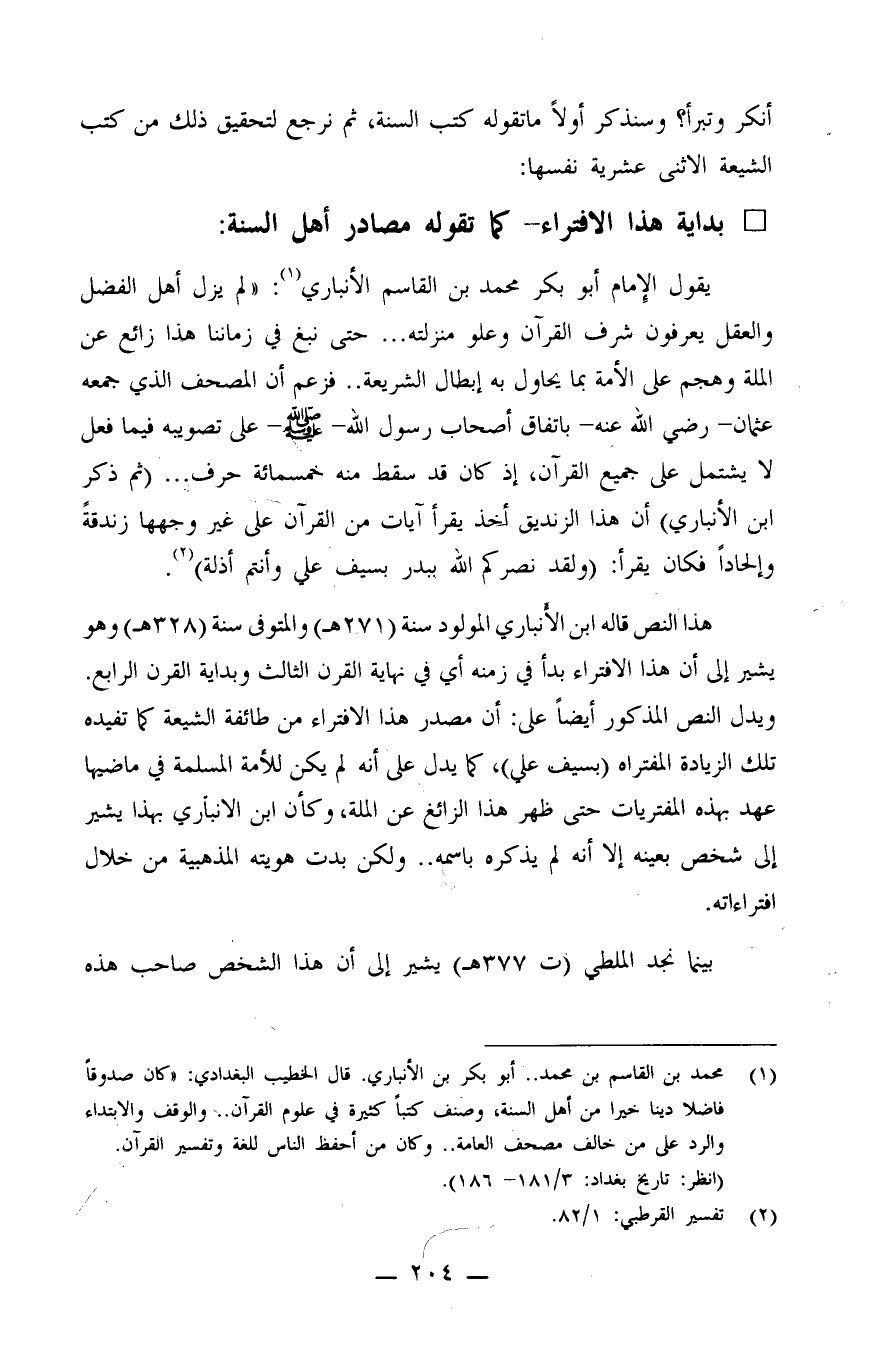 أنكر وتبرأ؟ وسنذكر أولاً ماتقوله كتب السنة، ثم نرجع لتحقيق ذلك من كتب
الشيعة الاثنى عشرية نفسها:
□ بداية هذا الافتراء– كما تقوله مصادر أهل السنة:
يقول الإمام أبو بكر محمد بن القاسم الأنباري(١): «لم يزل أهل الفضل
والعقل يعرفون شرف القرآن وعلو منزلته... حتى نبغ في زماننا هذا زائغ عن
الملة وهجم على الأمة بما يحاول به إبطال الشريعة.. فزعم أن المصحف الذي جمعه
عثمان– رضي الله عنه– باتفاق أصحاب رسول الله– ﷺ– على تصويبه فيما فعل
لا يشتمل على جميع القرآن، إذ كان قد سقط منه خمسمائة حرف... (ثم ذكر
ابن الأنباري) أن هذا الزنديق أخذ يقرأ آيات من القرآن على غير وجهها زندقةً
وإلحاداً فكان يقرأ: (ولقد نصركم الله ببدر بسيف علي وأنتم أذلة)(٢).
هذا النص قاله ابن الأنباري المولود سنة (٢٧١هـ) والمتوفى سنة (٣٢٨هـ) وهو
يشير إلى أن هذا الافتراء بدأ في زمنه أي في نهاية القرن الثالث وبداية القرن الرابع.
ويدل النص المذكور أيضاً على: أن مصدر هذا الافتراء من طائفة الشيعة كما تفيده
تلك الزيادة المفتراه (بسيف علي)، كما يدل على أنه لم يكن للأمة المسلمة في ماضيها
عهد بهذه المفتريات حتى ظهر هذا الزائغ عن الملة، وكأن ابن الانبأري بهذا يشير
إلى شخص بعينه إلا أنه لم يذكره باسمه.. ولكن بدت هويته المذهبية من خلال
افتراءاته.
بينما نجد الملطي (ت ٣٧٧هـ) يشير إلى أن هذا الشخص صاحب هذه
(١) محمد بن القاسم بن محمد.. أبو بكر بن الأنباري. قال الخطيب البغدادي: «كان صدوقاً
فاضلا دينا خيرا من أهل السنة، وصنف كتباً كثيرة في علوم القرآن.. والوقف والابتداء
والرد على من خالف مصحف العامة.. وكان من أحفظ الناس للغة وتفسير القرآن.
(انظر: تاريخ بغداد: ١٨١/٣– ١٨٦).
(٢) تفسير القرطبي: ٨٢/١.
— ٢٠٤ —